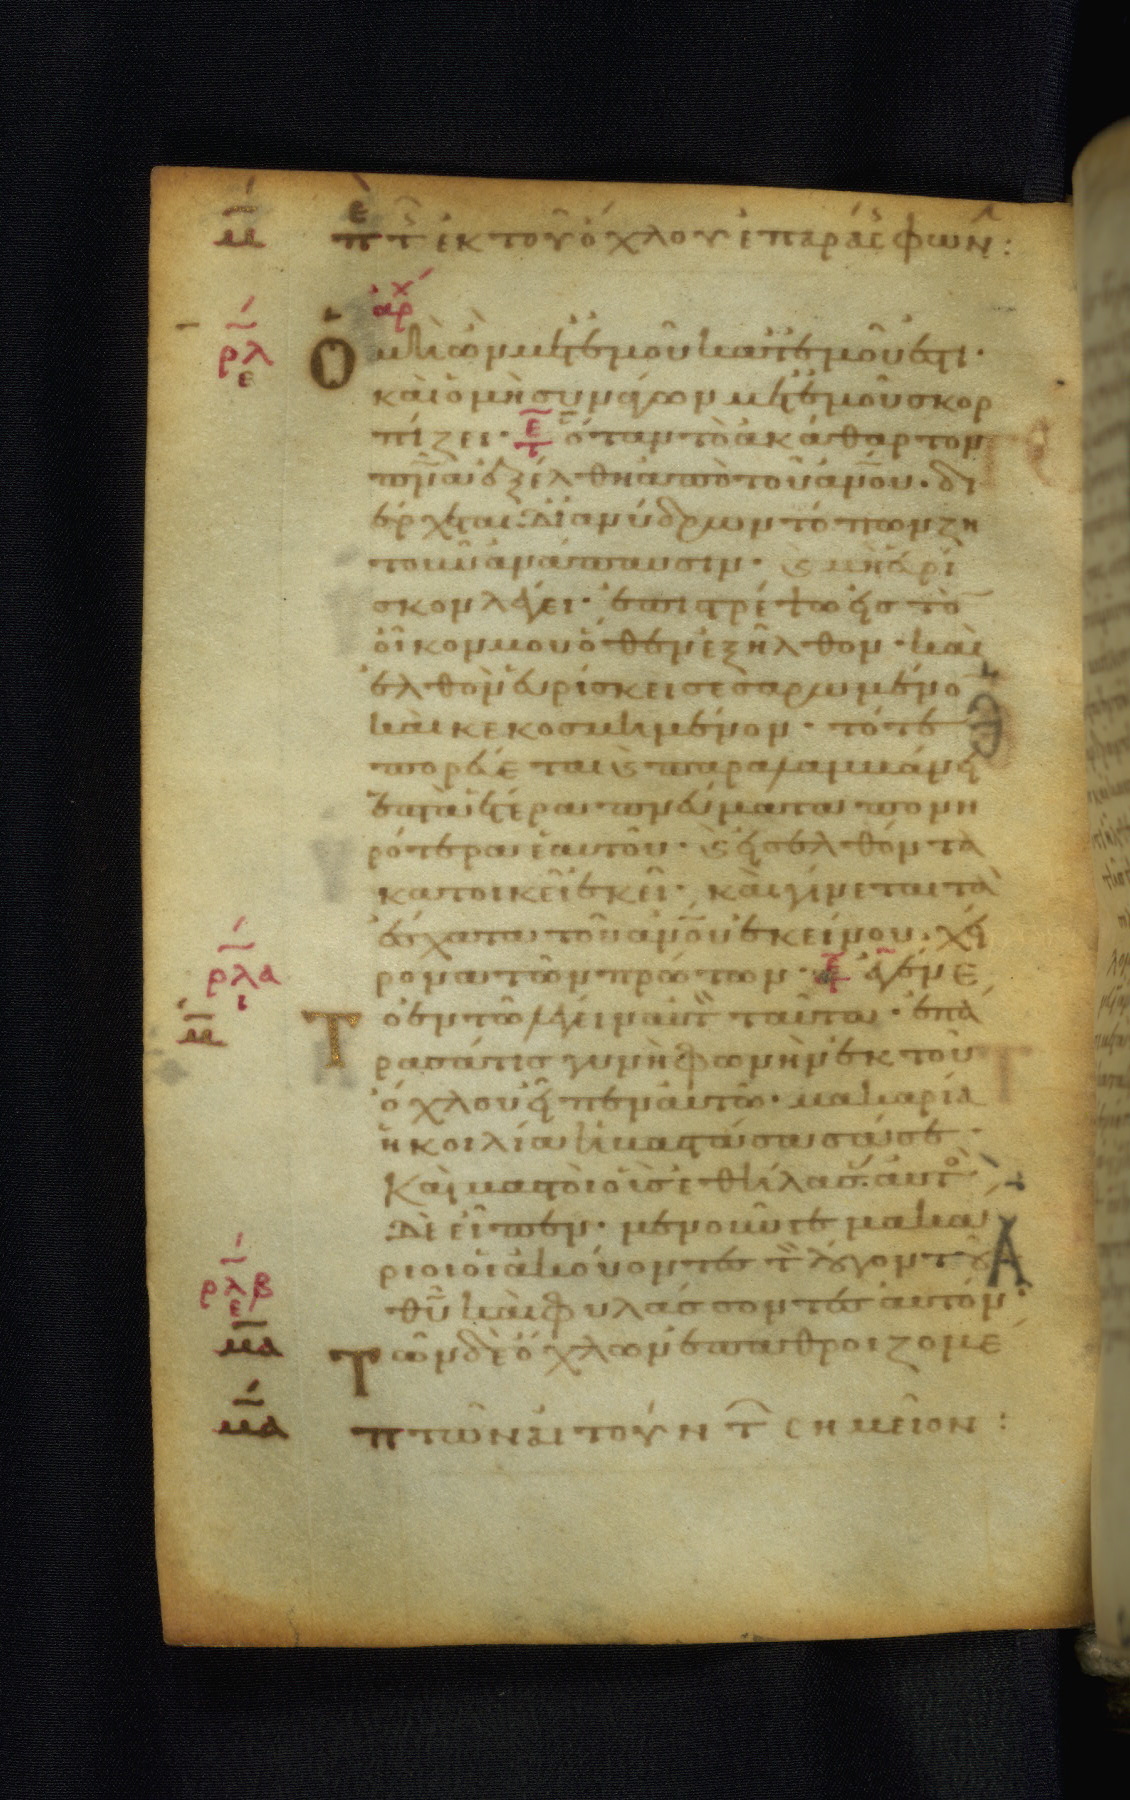 μ̄ π τ̂ ἐκ τοῦ ὄχλου ἐπαράσ φων :
ἀρχ
ρλ ε Ὁ μὴ ὢν μετ' ἐμοῦ κατ' ἐμοῦ ἐστι·
καὶ ὁ μὴ συνάγων μετ' ἐμοῦ σκορ
πίζει· τε ὅταν τὸ ἀκάθαρτον
πν̅α ἐξέλθη ἀπὸ τοῦ ἀν̅ου· δι
έρχεται δι' ἀνύδρων τόπων ζη
τοῦν ἀνάπαυσιν· ϗ μὴ εὑρί
σκον λέγει· ἐπιστρέψω εἰς τὸ
οἶκον μου ὅθεν ἐξῆλθον· καὶ
ἐλθὸν εὑρίσκει σεσαρωμένο
καὶ κεκοσμημένον· τότε
πορεύεται ϗ παραλαμβάνει
ἑπτὰ ἕτερα πνεύματα πονη
ρότερα ἑαυτοῦ· ϗ εἰσελθόντα
κατοικεῖ ἐκεῖ· καὶ γίνεται τὰ
ἔσχατα τοῦ ἀν̅ου ἐκείνου χεί
ρλα ι ρονα τῶν πρώτων· ἐγένε
μ̄ Τ ο ἐν τῶ λέγειν αὐτ ταῦτα· ἐπά
ρασά τις γυνὴ φωνὴν ἐκ τοῦ
ὄχλου εἶπεν αὐτῶ· μακαρία
ἡ κοιλία ἡ βαστάσασά σε·
Καὶ μαστοὶ οἳ σὲ θήλασ. αὐτὸ
δὲ εἶπεν· μενοῦνγε μακά
ριοι οἱ ἀκούοντες τ λόγον τ
ρλβ ε θῡ καὶ φυλάσσοντες αὐτόν·
μ̄α Τῶν δὲ ὄχλων ἐπαθροιζομέ
μ̄α π τῶν αἰτούν τ̂ σημεῖον :